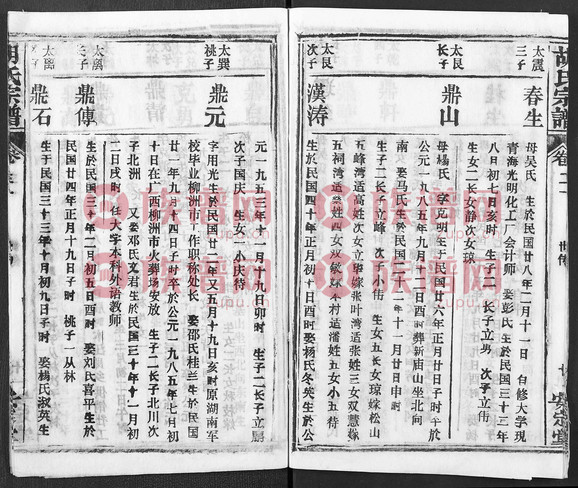 胡氏宗譜
太震
三子
春生
母吴氏 生於民国廿八年二月十一日 自修大学現
青海光明化工厂会計师 娶彭氏 生於民国三十三年
八日初七日亥时 生子二 长子立勇 次子立伟
生女二长女静次女琼
太艮
长子
鼎山
母楊氏 字克明生于民国廿六年正月廿日子时于於
公元一九八五年九月十一日酉时葬新庙山坐北向
南 娶馬氏生於民国二年十一月廿日申时
生子二长子立峰 次子小伟 生女五长女琼嫁松山
五峰湾适高姓次女立華嫁张叶湾适张姓三女双慧嫁
五祠湾适姓四女双敏嫁村适潘姓五女小四待
太艮
次子
漢涛
生於民国四十年初十日酉时娶杨氏冬英生於公
元一九五三年十一月十九日卯时 生子二长子立鵬
次子国庆 生女一小庆待
太巽
桃子
鼎元
字用光生於民国十一年又五月十九日亥时原湖南军
校毕业柳洲市工作职称处长 娶邵氏桂兰生於民国
廿一年九月十四日子时卒於公元一九八五年七月初
十日在广西柳洲市火葬场安放 生子二长子北川次
子北洲 又娶邓氏文君生於民国三十年十一月初
二日戌时 任大学本科外语教师
太离
长子
鼎傳
生於民国三十年二月初五日酉时 娶刘氏喜平生於
民国廿四年正月十九日子时 桃子一丛林
太离
次子
鼎石
生于民国三十三年十月初三日子时 娶楊氏淑英生
胡氏宗譜